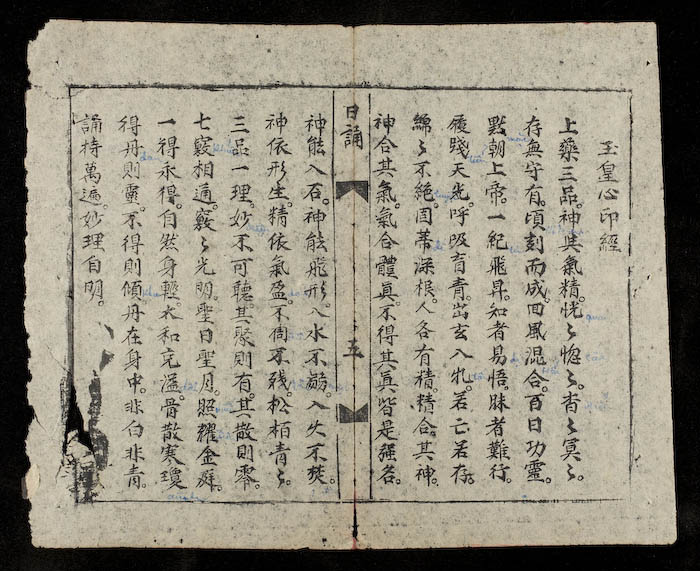 玉皇心印經
上藥三品。神其氣精。恍〻惚〻。杳〻冥〻。
存無守有。頃刻而成。回風混合。百日功靈。
默朝上帝。一紀飛昇。知者易悟。昧者難行。
履踐天光。呼吸育青。出玄入牝。若亡若存。
綿〻不絕。固蒂深根。人各有精。精合其神。
神合其氣。氣合體真。不得其真。皆是强名。
日誦
五
神能入石。神能飛形。入水不溺。入火不焚。
神依形生。精依氣盈。不凋不殘。松柏青〻。
三品一理。妙不可聽。其聚則有。其散則零。
七竅相通。竅〻光明。聖日聖月。照耀金庭。
一得永得。自然身輕。太和充溢。骨散寒瓊。
得丹則靈。不得則傾。丹在身中。非白非青。
誦持萬遍。妙理自明。